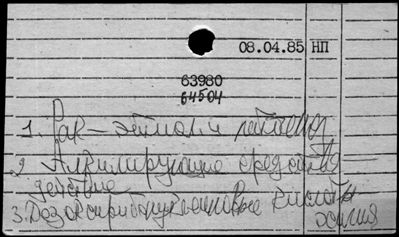 08.04.85 НП
63980
64504
1. Рак – этиол. и патоген.
2. Алкилирующие средства
действие
3. Дезоксирибонуклеиновые кислоты